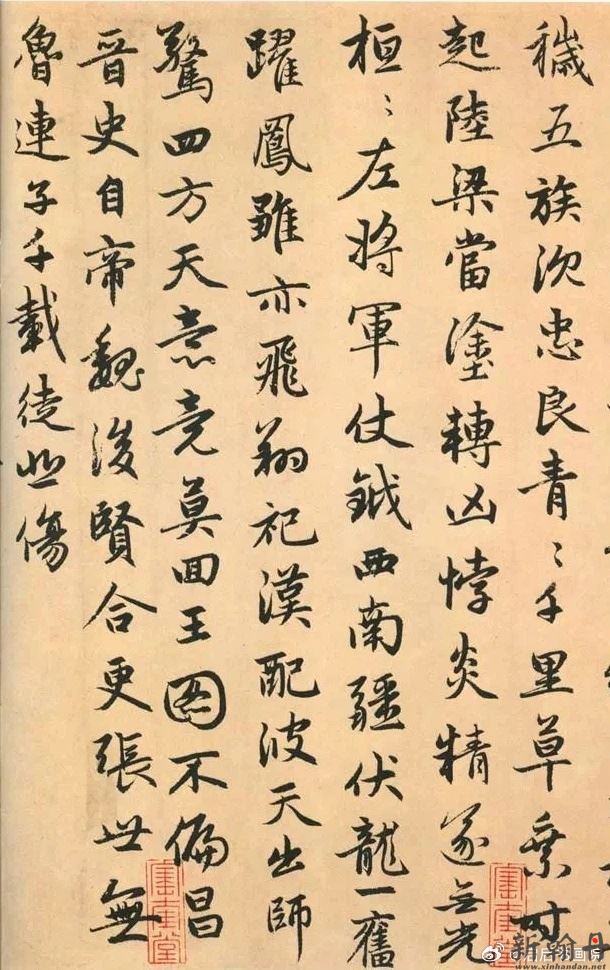 穢五族沈忠良青〻千里草乗時
起陸梁當塗轉凶悖炎精遂无光
桓〻左將軍仗鉞西南疆伏龍一奮
躍鳳雛亦飛翔祀漢配彼天出師
驚四方天意竟莫囬王圖不偏昌
晉史自帝魏後賢合更張世無
魯連子千載徒悲傷
www.xinhandan.net